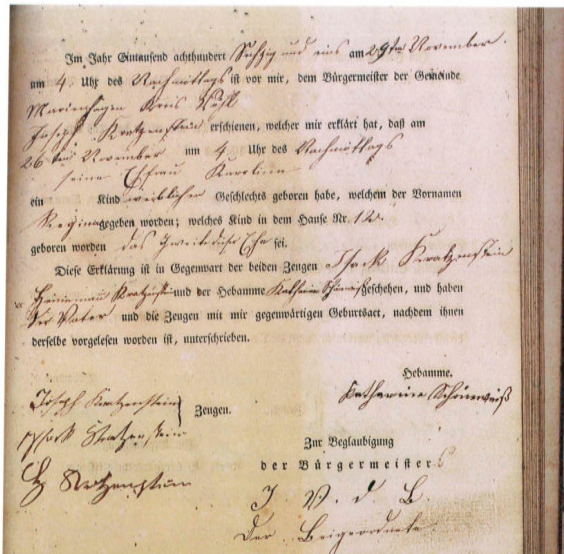 Im Jahr Eintausend achthundert Sechzig und eins am 29ten November.
um 4 Uhr des Nachmittags ist vor mir, dem Bürgermeister der Gemeinde
Marienhagen Kreis Vöhl
Joseph Kratzenstein erschienen, welcher mir erklärt hat, daß am
26ten November um 4 Uhr des Nachmittags
seine Ehfrau Karolina
ein Kind weiblichen Geschlechts geboren habe, welchem der Vornamen
Regina gegeben worden; welches Kind in dem Hause Nr. 12.
geboren worden das Zweite dieser Ehe sei.
Diese Erklärung ist in Gegenwart der beiden Zeugen Isack Kratzenstein
Heinemann Kratzenstein und der Hebamme geschehen, und haben
der Vater und die Zeugen mit mir gegenwärtigen Geburtsact, nachdem ihnen
derselbe vorgelesen worden ist, unterschrieben.
Hebamme.
Katharina Schöneweiß
Joseph Kratzenstein
Zeugen.
Isack Kratzenstein
H Kratzenstein
Zur Beglaubigung
der Bürgermeisters
I. V. d. B.
Der Beigeordnete